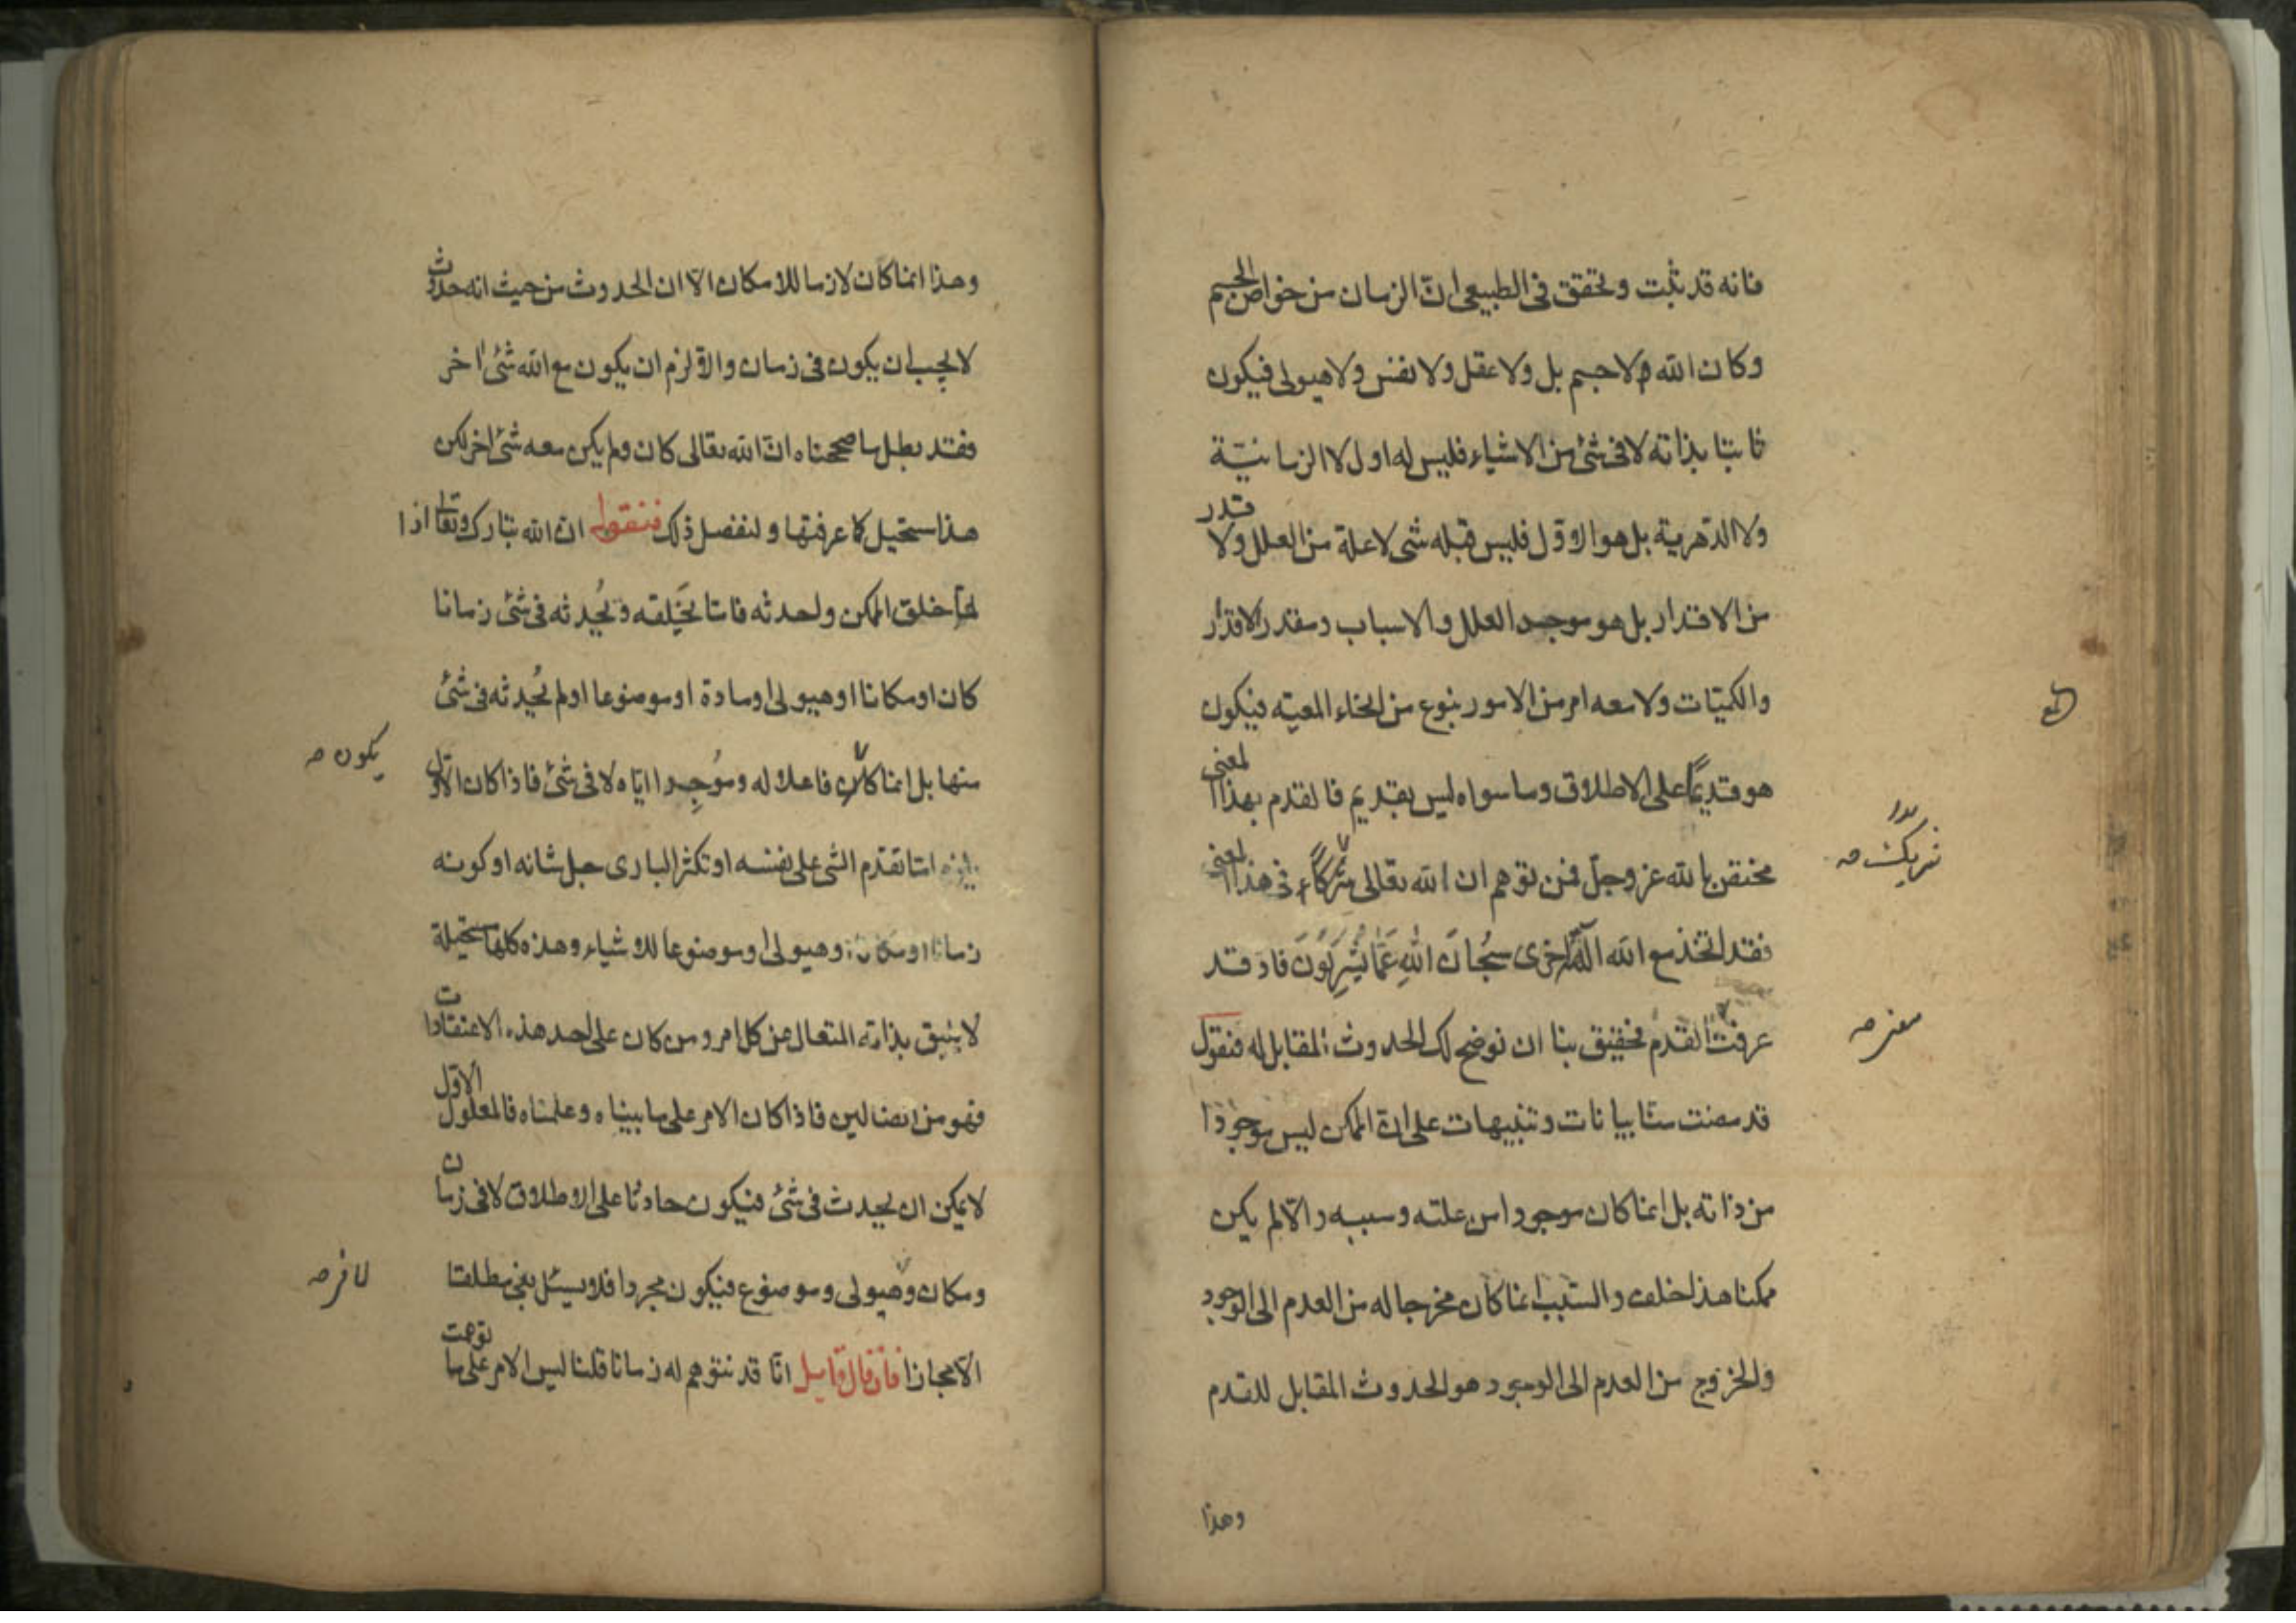 فانه قد ثبت وتحقق فى الطبيعى انّ الزمان من خواص الجسم
وكان الله ولا جسم بل ولا عقل ولا نفس ولا هيولى فيكون
ثابتا بذاته لا فى شئ من الاشياء فليس له اول لا الزمانيّة
ولا الدّهرية بل هو الاوّل فليس قبله شى لا علة من العلل ولا قدر
من الاقدار بل هو موجد العلل والاسباب ومقدر الاقدار
والكميّات ولا معه امر من الامور بنوع من انحاء المعيّه فيكون
هو قديمًا على الاطلاق وما سواه ليس بقديم فالقدم بهذا المعنى
مختص بالله عز وجلّ فمن توهم ان الله تعالى شركاء فى هذا المعنى
شريكًا صه
فقد اتخذ مع الله الهًا اخرى سُبحانَ اللهِ عَمَّا يُشْرِكُونَ فاذ قد
عرفت القدم فحقيق بنا ان نوضح لك الحدوث المقابل له فنقول
معنى صه
قد مضت منّا بيانات وتنبيهات على انّ الممكن ليس موجودا
من ذاته بل انما كان موجودا من علته وسببه والّا لم يكن
ممكنا هذا خلف والسّبب انما كان مخرجا له من العدم الى الوجود
والخروج من العدم الى الوجود هو الحدوث المقابل للقدم
وهذا
وهذا انما كان لازما للامكان الّا ان الحدوث من حيث انه حدوث
لا يجب ان يكون فى زمان والّا لزم ان يكون مع الله شئ اخر
فقد بطل ما صححناه انّ الله تعالى كان ولم يكن معه شئ اخر لكن
هذا مستحيل كما عرفتها ولنفصل ذلك فنقول ان الله تبارك وتعالى اذا
لمّا خلق الممكن واحدثه فامّا يَخلقه ويُحدثه فى شئ زمانا
كان او مكانا او هيولى او مادة او موضوعا او لم يُحدثه فى شئ
منها بل انما كان فاعلا له ومُوجِدا ايّاه لا فى شئ فاذا كان الاوّل
يكون صه
يلزم امّا تقدّم الشئ على نفسه او تكثر البارى جل شانه او كونه
زمانا او مكانا وهيولى او موضوعا للاشياء وهذه كلها مستحيلة
لا يليق بذاته المتعال عن كل امر ومن كان على احد هذه الاعتقادات
فهو من الضالين فاذا كان الامر على ما بيناه وعلمناه فالمعلول الاوّل
لا يمكن ان يحدث فى شئ فيكون حادثا على الاطلاق لا فى زمان
ومكان وهيولى وموضوع فيكون مجردا فلا يسئل بفى مطلقا
لا فى صه
الّا مجازا فان قال قايل انّا قد نتوهم له زمانا قلنا ليس الامر على ما توهمت